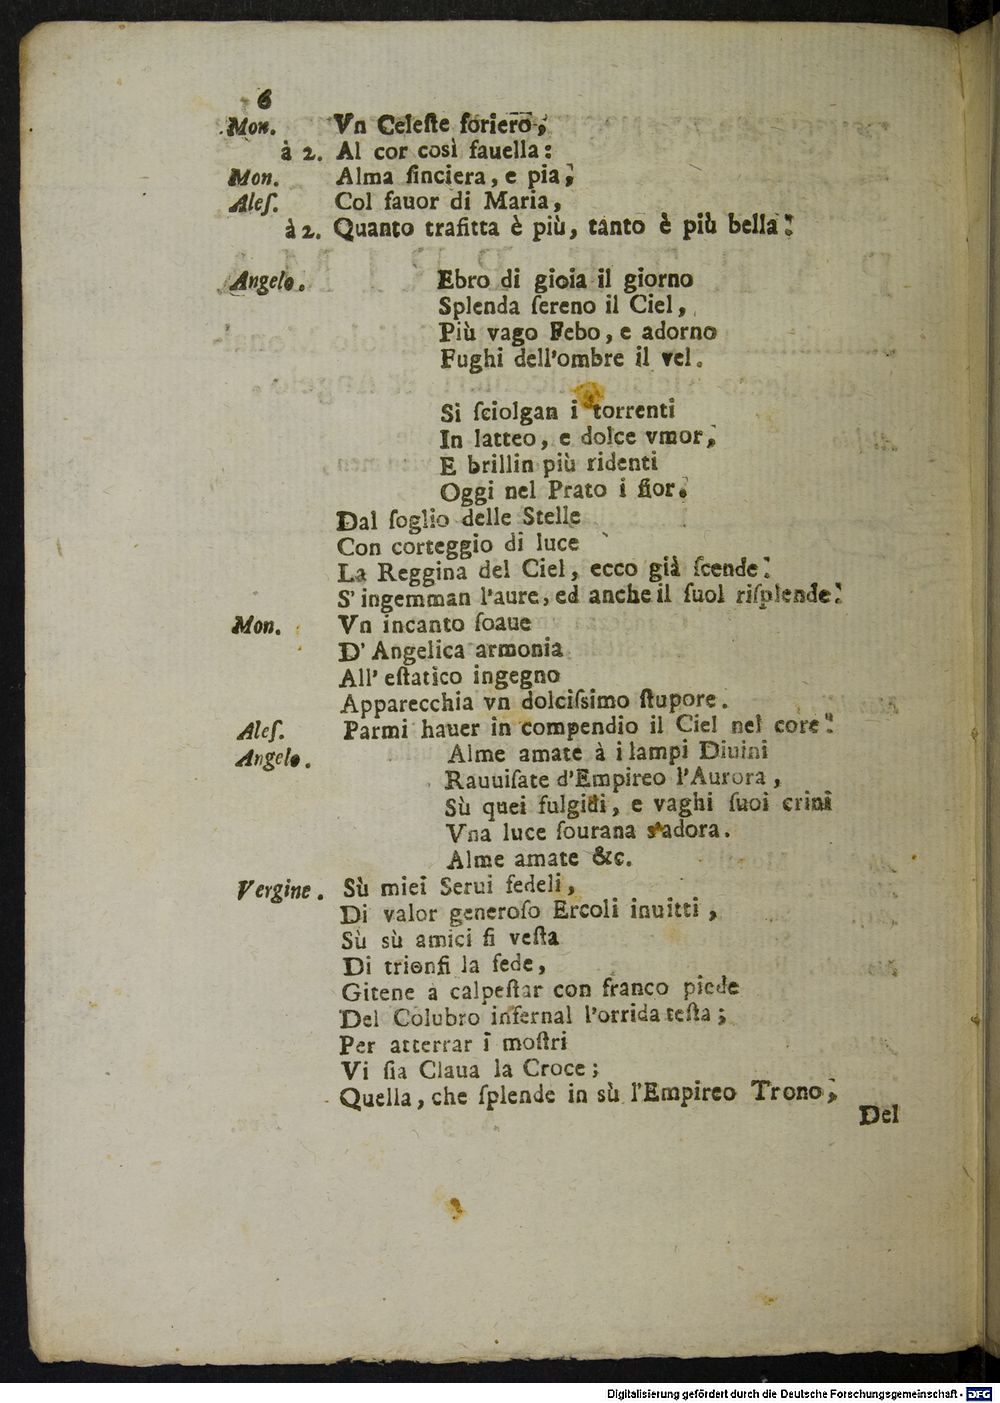 6
Mon. Vn Celeſte foriero,
à 2. Al cor così fauella:
Mon. Alma ſinciera, e pia,
Aleſ. Col fauor di Maria,
à 2. Quanto trafitta è più, tanto è più bella!
Angelo. Ebro di gioia il giorno
Splenda ſereno il Ciel,
Più vago Febo, e adorno
Fughi dell'ombre il vel.
Si ſciolgan i torrenti
In latteo, e dolce vmor,
E brillin più ridenti
Oggi nel Prato i fior.
Dal ſoglio delle Stelle
Con corteggio di luce
La Reggina del Ciel, ecco già ſcende!
S'ingemman l'aure, ed anche il ſuol riſplende!
Mon. Vn incanto ſoaue
D'Angelica armonia
All'eſtatico ingegno
Apparecchia vn dolciſsimo ſtupore.
Aleſ. Parmi hauer in compendio il Ciel nel core!
Angelo. Alme amate à i lampi Diuini
Rauuiſate d'Empireo l'Aurora,
Sù quei fulgidi, e vaghi ſuoi crini
Vna luce ſourana s'adora.
Alme amate &c.
Vergine. Sù miei Serui fedeli,
Di valor generoſo Ercoli inuitti,
Sù sù amici ſi veſta
Di trionfi la fede,
Gitene a calpeſtar con franco piede
Del Colubro infernal l'orrida teſta;
Per atterrar i moſtri
Vi ſia Claua la Croce;
Quella, che ſplende in sù l'Empireo Trono,
Del
Digitalisierung gefördert durch die Deutsche Forschungsgemeinschaft - DFG